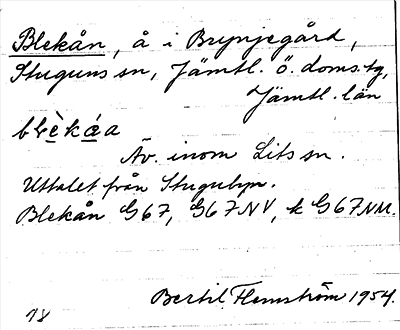 Blekån, å i Brynjegård,
Stuguns sn, Jämtl. ö. doms. tg,
Jämtl. län
blèkáa
Äv. inom Lits sn.
Uttalet från Stugubyn.
Blekån G67, G67NV, k G67NM.
Bertil Flemström 1954.
18